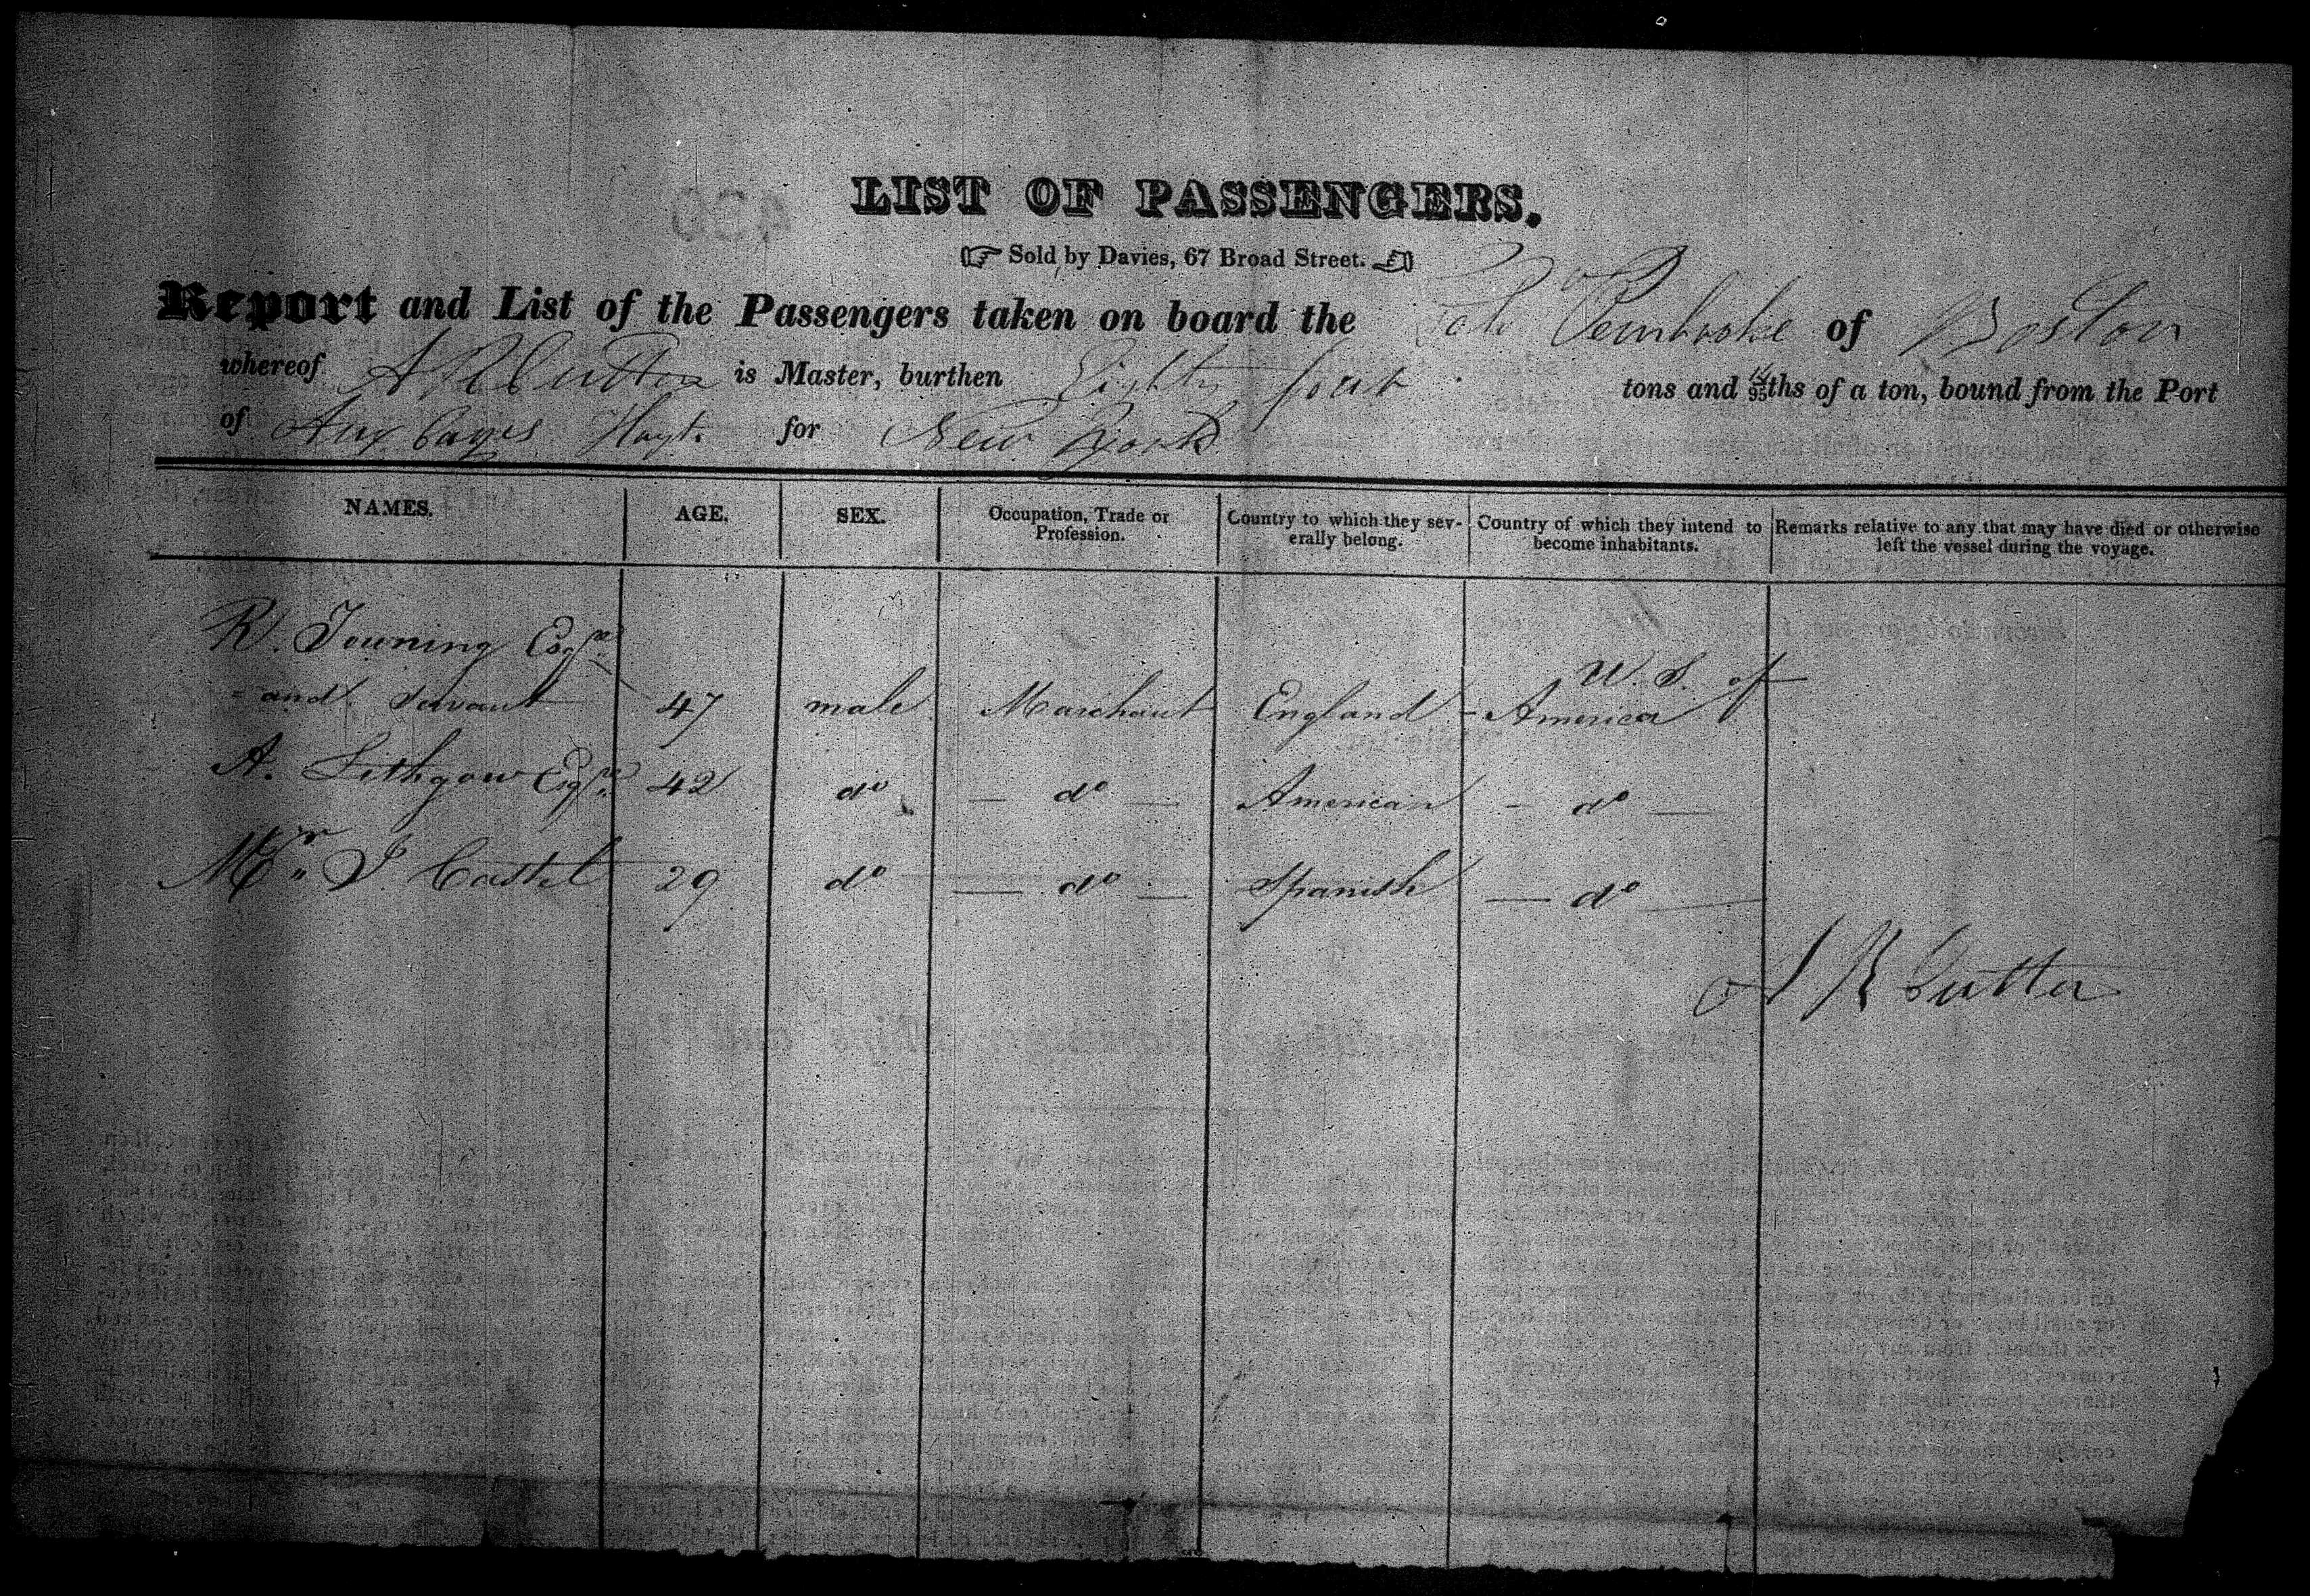 LIST OF PASSENGERS.
Sold by Davies, 67 Broad Street.
Report and List of the Passengers taken on board the Sch Pembroke of Boston
whereof A R Cutter is Master, burthen Eighty four tons and 14/95ths of a ton, bound from the Port
of Aux Cayes Hayti for New York
NAMES. AGE. SEX. Occupation, Trade or Profession. Country to which they severally belong. Country of which they intend to become inhabitants. Remarks relative to any that may have died or otherwise left the vessel during the voyage.
R. Touning Esqre
and Servant 47 male Marchant England U. S. of America
A. Lithgow Esqre 42 do do American do
Mr J. Castel 29 do do Spanish do
A R Cutter